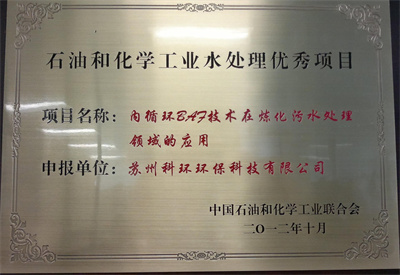 石油和化学工业水处理优秀项目
项目名称：内循环BAF技术在炼化污水处理
领域的应用
申报单位：苏州科环环保科技有限公司
中国石油和化学工业联合会
二〇一二年十月